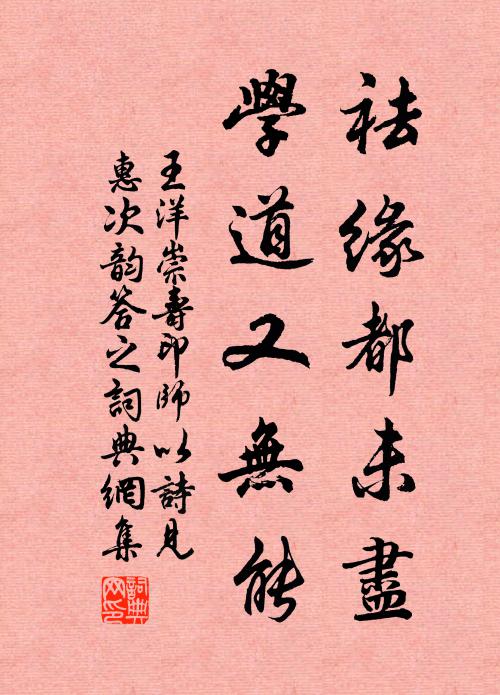 袪緣都未盡
學道又無能
王洋崇壽印師以詩見
惠次韵答之詞典網集
詞典
网印